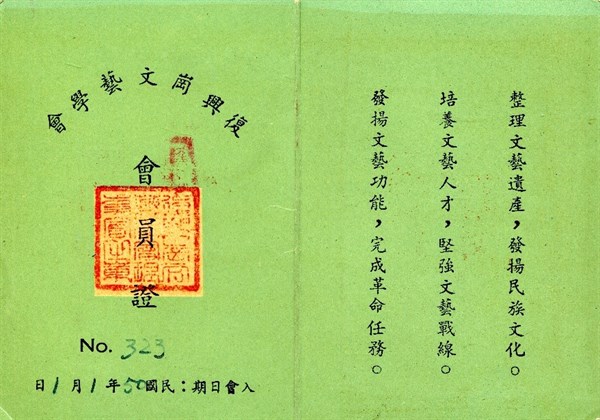 復興崗文藝學會
會員證
No. 323
入會日期：民國50年1月1日
整理文藝遺產，發揚民族文化。
培養文藝人才，堅強文藝戰線。
發揚文藝功能，完成革命任務。